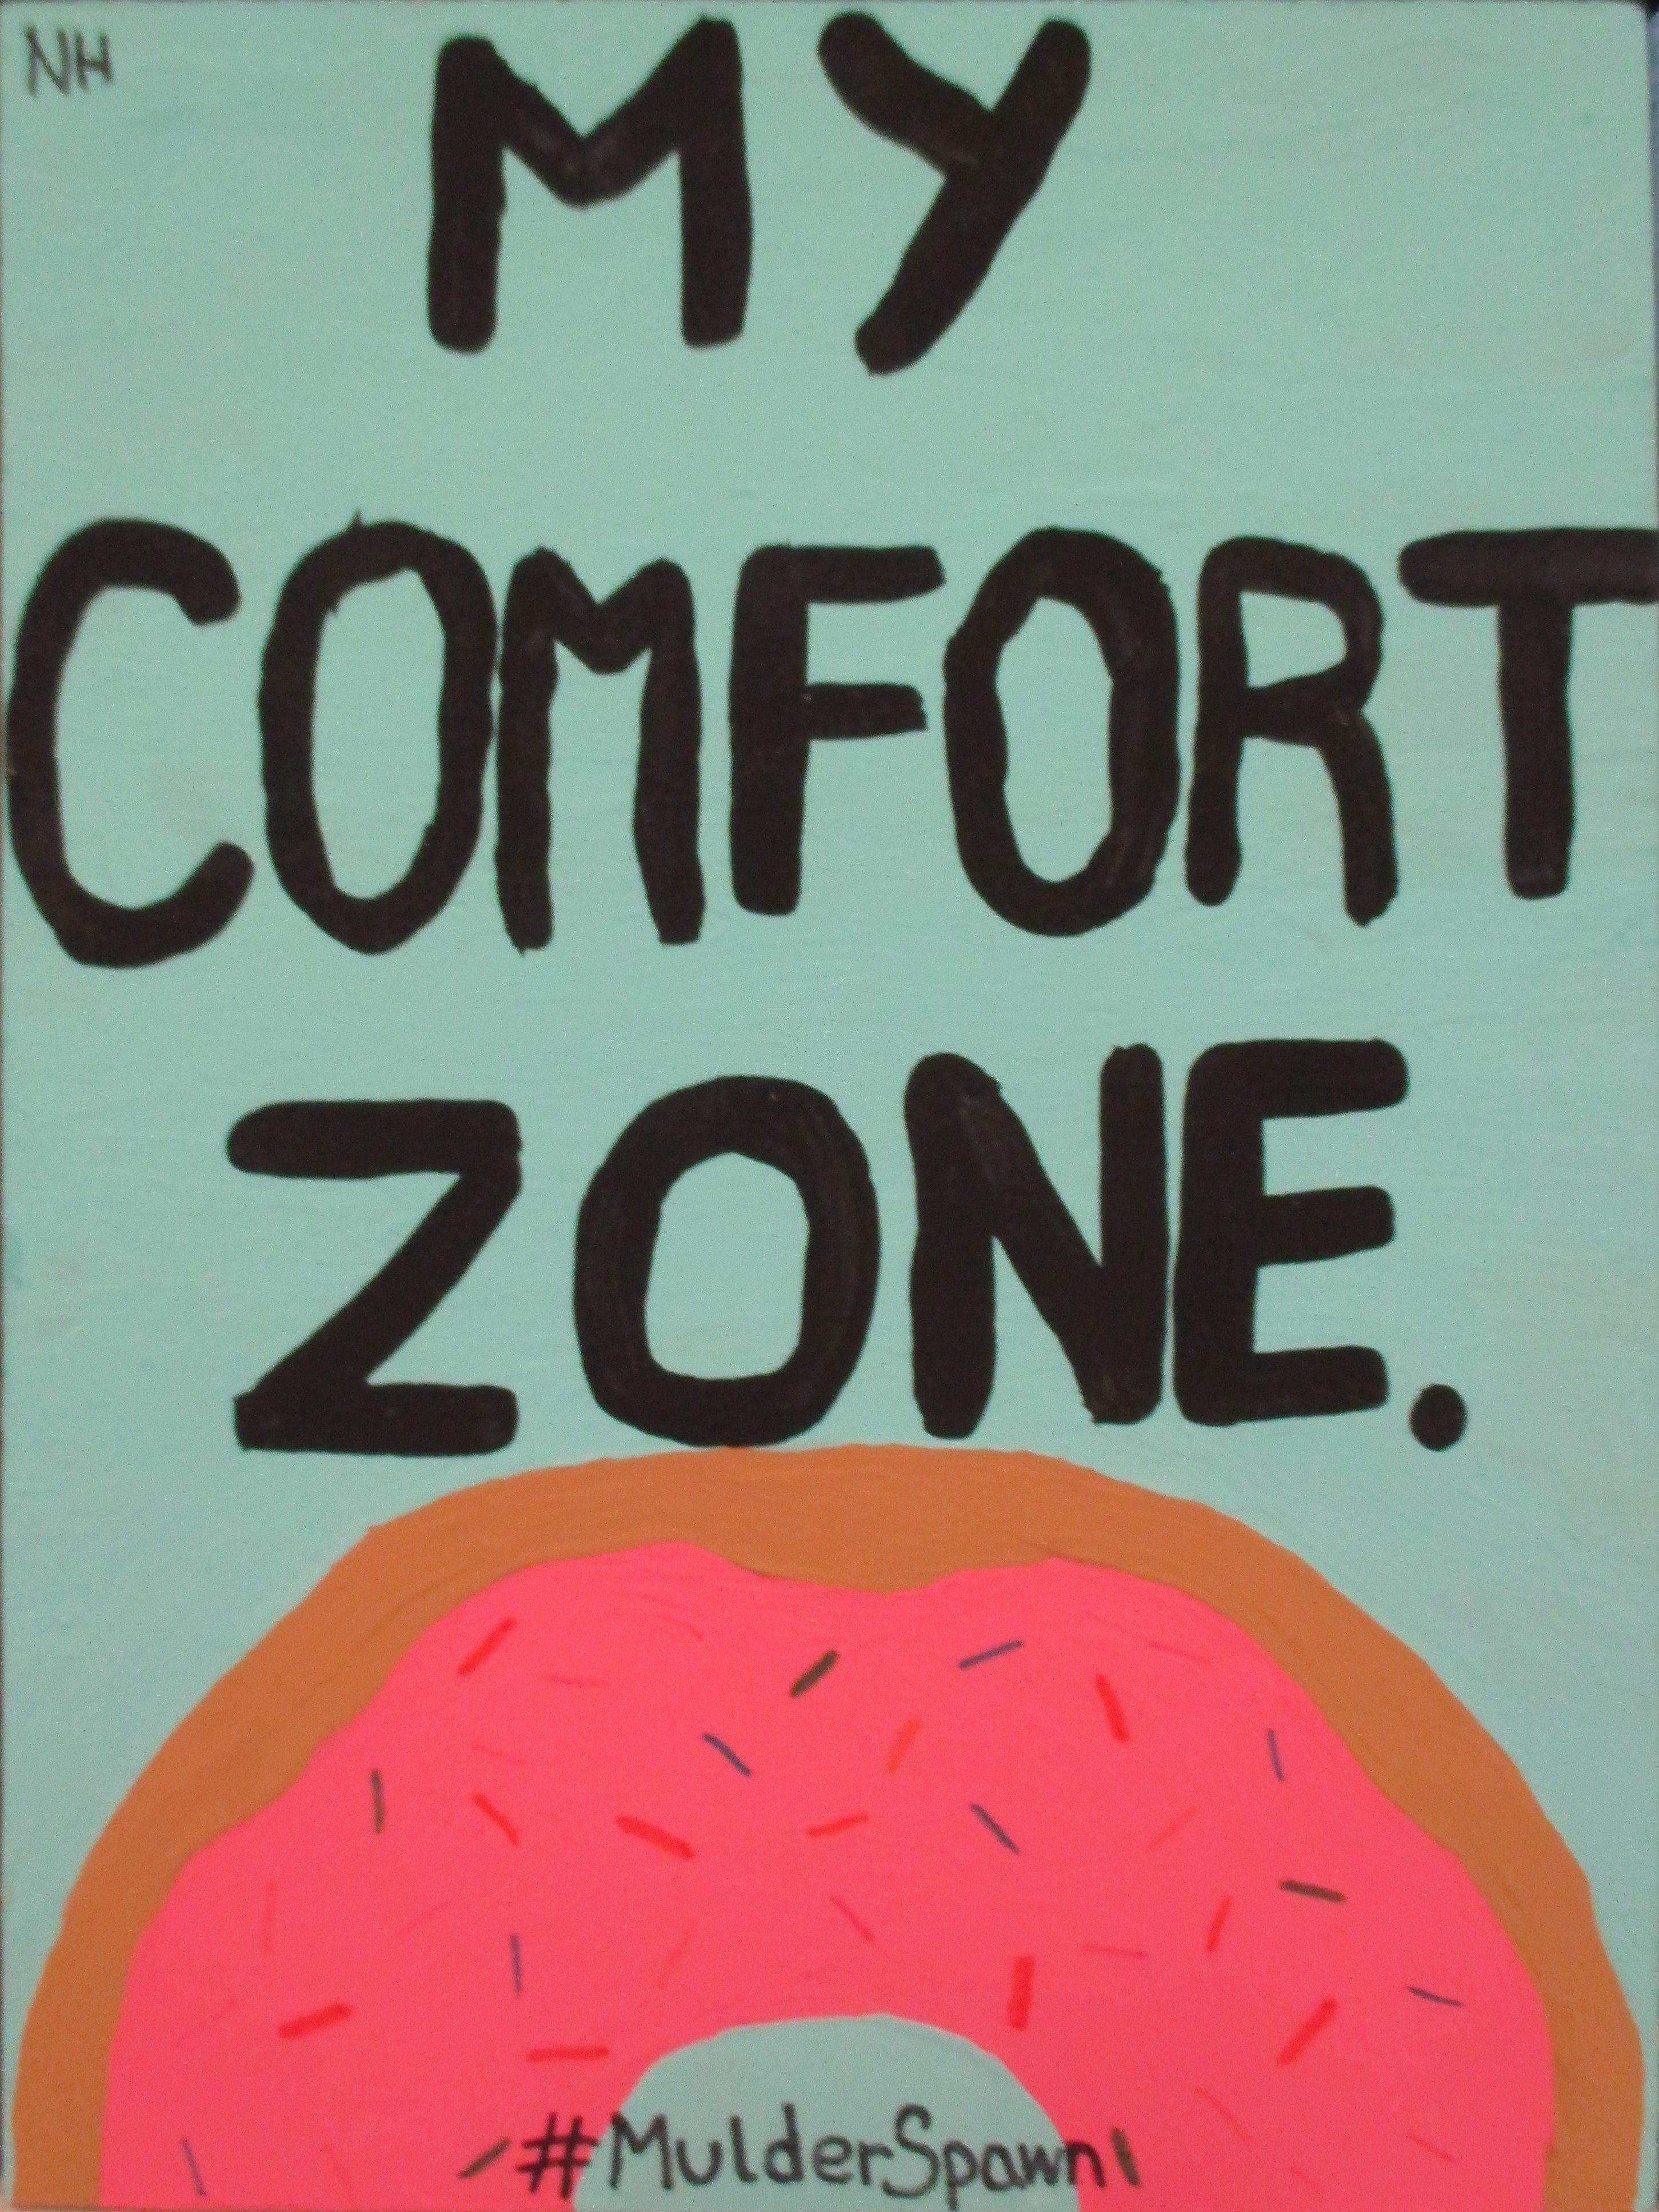 NH
MY
COMFORT
ZONE.
#MulderSpawn